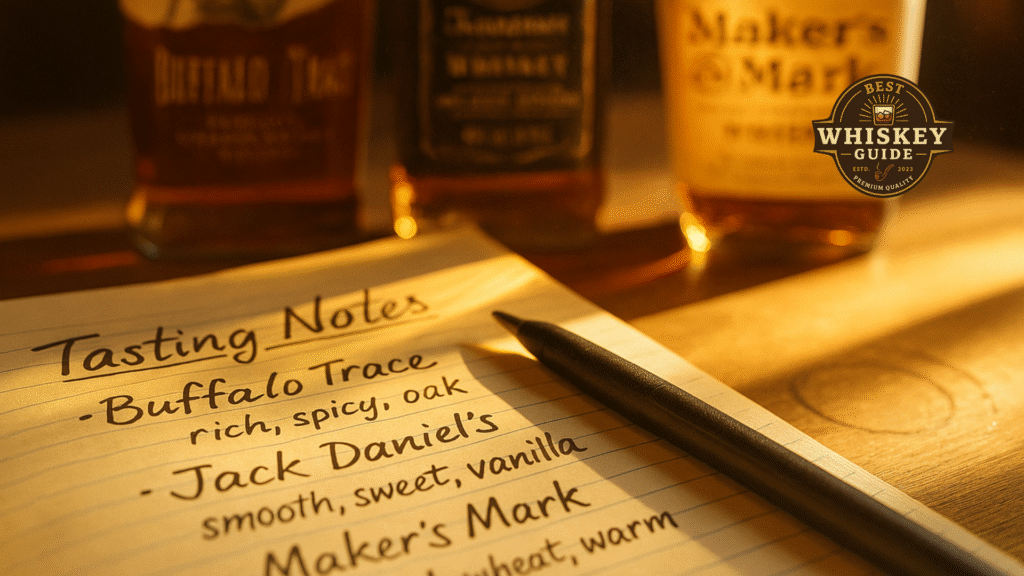 BUFFALO TRACE
Tennessee
WHISKEY
Maker's
Mark
BEST
WHISKEY
GUIDE
ESTD. 2023
PREMIUM QUALITY
Tasting Notes
- Buffalo Trace
rich, spicy, oak
- Jack Daniel's
smooth, sweet, vanilla
Maker's Mark
wheat, warm